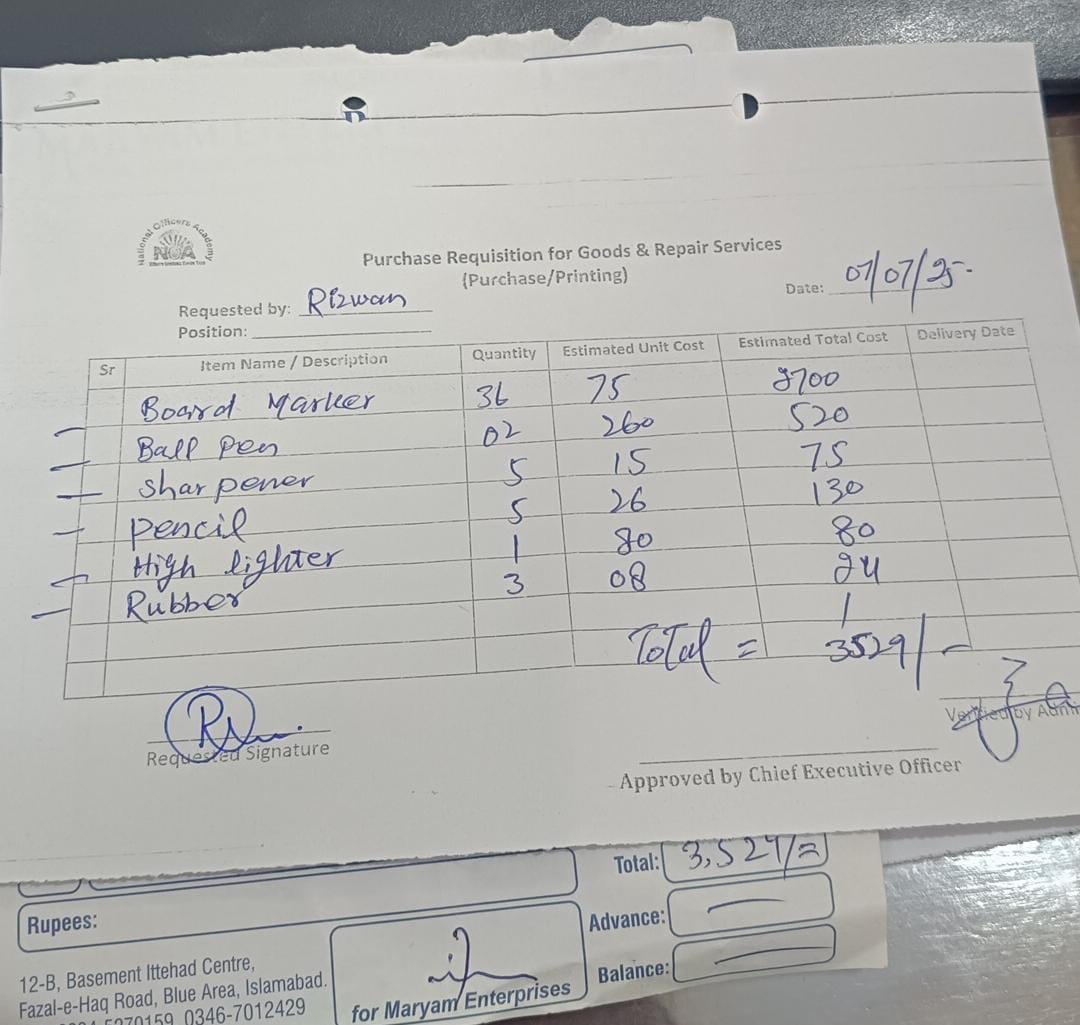 National Officers Academy
NOA
Purchase Requisition for Goods & Repair Services
(Purchase/Printing)
Requested by: Rizwan
Date: 07/07/25-
Position:
Sr Item Name / Description Quantity Estimated Unit Cost Estimated Total Cost Delivery Date
Board Marker 36 75 2700
Ball Pen 02 260 520
Sharpener 5 15 75
Pencil 5 26 130
High lighter 1 80 80
Rubber 3 08 24
Total = 3529/-
Requested Signature
Verified by Admin
Approved by Chief Executive Officer
Total: 3,529/=
Rupees:
Advance: —
Balance: —
12-B, Basement Ittehad Centre,
Fazal-e-Haq Road, Blue Area, Islamabad.
5270159, 0346-7012429
for Maryam Enterprises